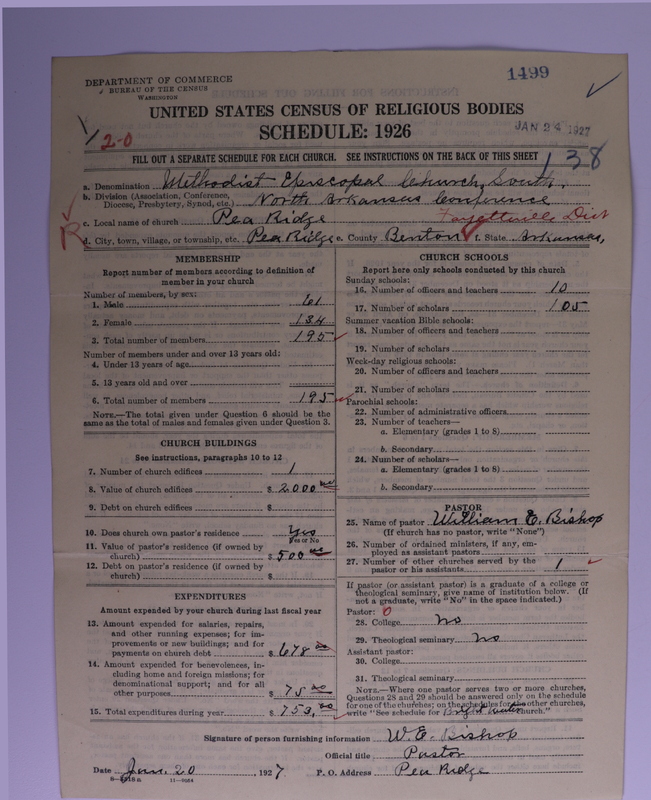 DEPARTMENT OF COMMERCE
BUREAU OF THE CENSUS
WASHINGTON
1499
UNITED STATES CENSUS OF RELIGIOUS BODIES
SCHEDULE: 1926
JAN 24 1927
2-0
FILL OUT A SEPARATE SCHEDULE FOR EACH CHURCH. SEE INSTRUCTIONS ON THE BACK OF THIS SHEET
138
a. Denomination Methodist Episcopal Church, South,
b. Division (Association, Conference, Diocese, Presbytery, Synod, etc.) North Arkansas Conference
c. Local name of church Pea Ridge Fayetteville Dist
R
d. City, town, village, or township, etc. Pea Ridge e. County Benton f. State Arkansas,
MEMBERSHIP
Report number of members according to definition of
member in your church
Number of members, by sex:
1. Male 61
2. Female 134
3. Total number of members 195
Number of members under and over 13 years old:
4. Under 13 years of age
5. 13 years old and over
6. Total number of members 195
NOTE.—The total given under Question 6 should be
same as the total of males and females given under Question 3.
CHURCH BUILDINGS
See instructions, paragraphs 10 to 12
7. Number of church edifices 1
8. Value of church edifices $ 2000 00
9. Debt on church edifices $
10. Does church own pastor's residence Yes
Yes or No
11. Value of pastor's residence (if owned by
church) $ 500 00
12. Debt on pastor's residence (if owned by
church) $
EXPENDITURES
Amount expended by your church during last fiscal year
13. Amount expended for salaries, repairs,
and other running expenses; for im-
provements or new buildings; and for
payments on church debt $ 678 00
14. Amount expended for benevolences, in-
cluding home and foreign missions; for
denominational support; and for all
other purposes $ 75 00
15. Total expenditures during year $ 753,00
CHURCH SCHOOLS
Report here only schools conducted by this church
Sunday schools:
16. Number of officers and teachers 10
17. Number of scholars 105
Summer vacation Bible schools:
18. Number of officers and teachers
19. Number of scholars
Week-day religious schools:
20. Number of officers and teachers
21. Number of scholars
Parochial schools:
22. Number of administrative officers
23. Number of teachers—
a. Elementary (grades 1 to 8)
b. Secondary
24. Number of scholars—
a. Elementary (grades 1 to 8)
b. Secondary
PASTOR
25. Name of pastor William E. Bishop
(If church has no pastor, write "None")
26. Number of ordained ministers, if any, em-
ployed as assistant pastors
27. Number of other churches served by the
pastor or his assistants 1
If pastor (or assistant pastor) is a graduate of a college or
theological seminary, give name of institution below. (If
not a graduate, write "No" in the space indicated.)
Pastor: 0
28. College no
29. Theological seminary no
Assistant pastor:
30. College
31. Theological seminary
NOTE.—Where one pastor serves two or more churches,
Questions 28 and 29 should be answered only on the schedule
for one of the churches; on the schedules for the other churches,
write "See schedule for church."
Signature of person furnishing information W. E. Bishop
Official title Pastor
Date Jan. 20, 1927 P. O. Address Pea Ridge
11—9024